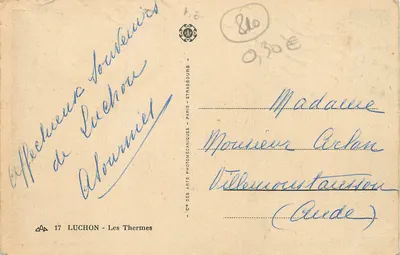 Affectueux Souvenirs
de Luchon
810
0,30€
Madame
Monsieur
(Aude)
CIE DES ARTS PHOTOMÉCANIQUES - PARIS-STRASBOURG
17 LUCHON - Les Thermes